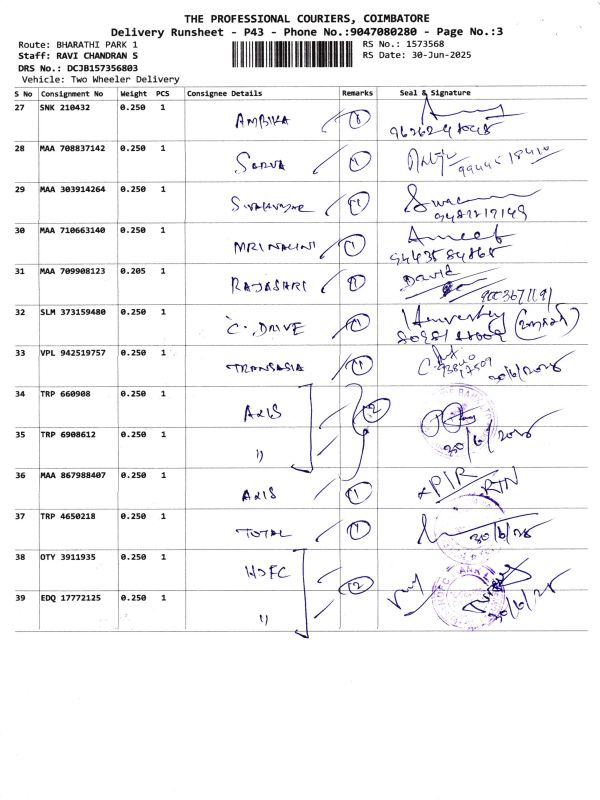 THE PROFESSIONAL COURIERS, COIMBATORE
Delivery Runsheet - P43 - Phone No.:9047080280 - Page No.:3
Route: BHARATHI PARK 1
RS No.: 1573568
Staff: RAVI CHANDRAN S
RS Date: 30-Jun-2025
DRS No.: DCJB157356803
Vehicle: Two Wheeler Delivery
S No Consignment No Weight PCS Consignee Details Remarks Seal & Signature
27 SNK 210432 0.250 1
AMBIKA
28 MAA 708837142 0.250 1
SARVA 1
9944518410
29 MAA 303914264 0.250 1
30 MAA 710663140 0.250 1
MRINALINI 1
Ameef
31 MAA 709908123 0.205 1
RAJASARI 1 David
32 SLM 373159480 0.250 1
C. DRIVE 1
33 VPL 942519757 0.250 1
TRANSASIA 1
30/6/2025
34 TRP 660908 0.250 1
AXIS 2
35 TRP 6908612 0.250 1
11 30/6/2025
36 MAA 867988407 0.250 1
AXIS 1 PIR RTN
37 TRP 4650218 0.250 1
TOTAL 1 30/6/25
38 OTY 3911935 0.250 1
HDFC 2
39 EDQ 17772125 0.250 1
11 30/6/25